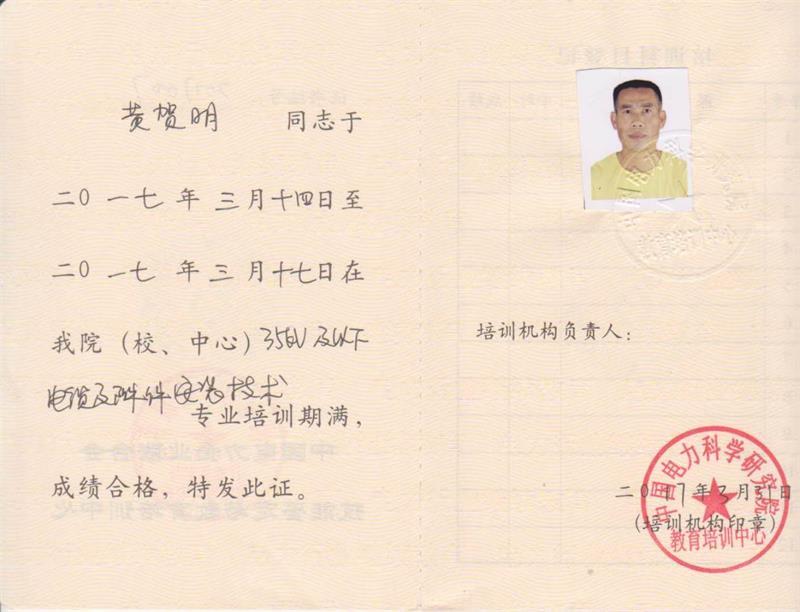 黄贺明 同志于
二〇一七年三月十四日至
二〇一七年三月十七日在
我院（校、中心）35kV及以下
电缆及附件安装技术
专业培训期满，
成绩合格，特发此证。
培训机构负责人：
二〇17年3月31日
（培训机构印章）
中国电力科学研究院
教育培训中心